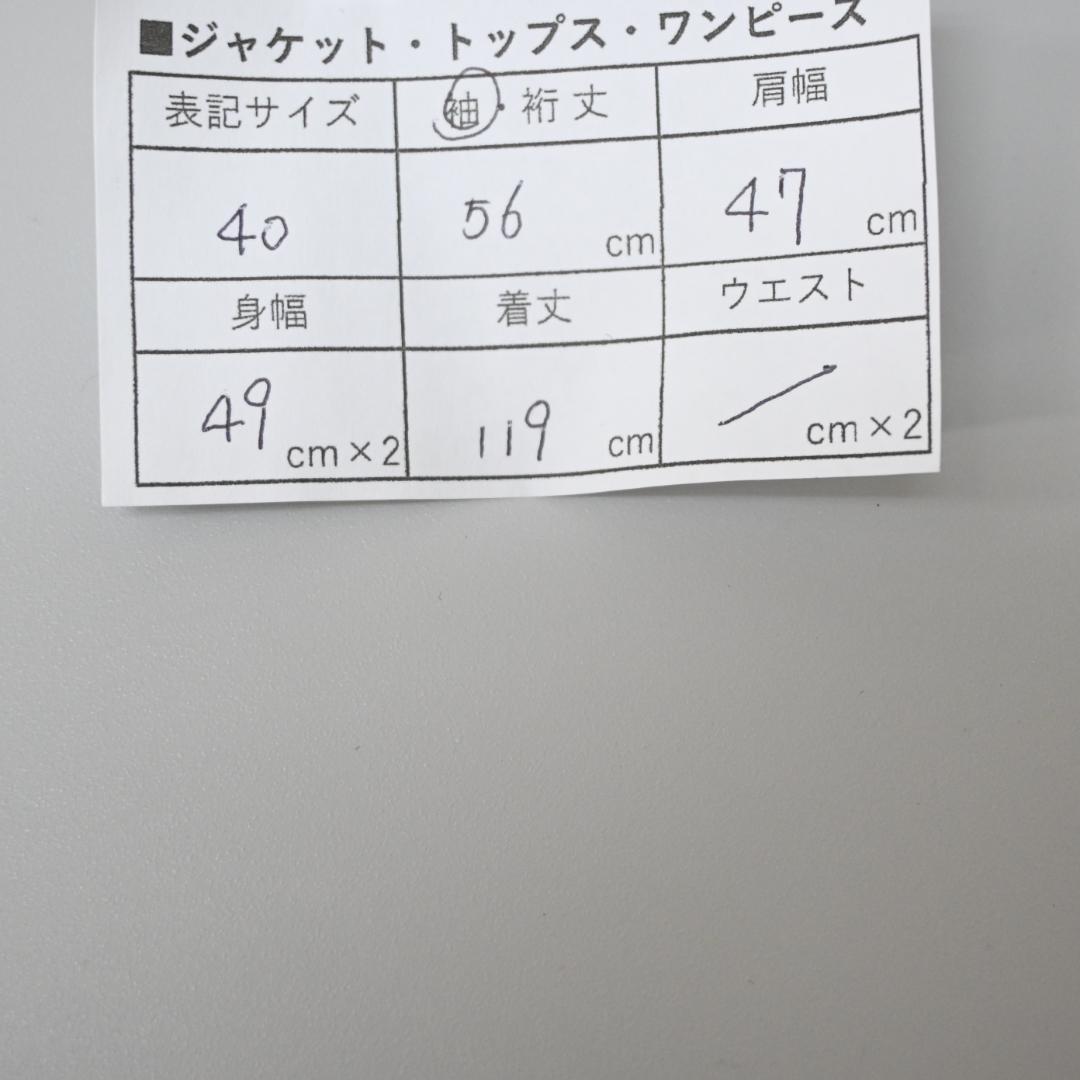 ■ジャケット・トップス・ワンピース
表記サイズ 袖・裄丈 肩幅
40 56 cm 47 cm
身幅 着丈 ウエスト
49 cm×2 119 cm / cm×2